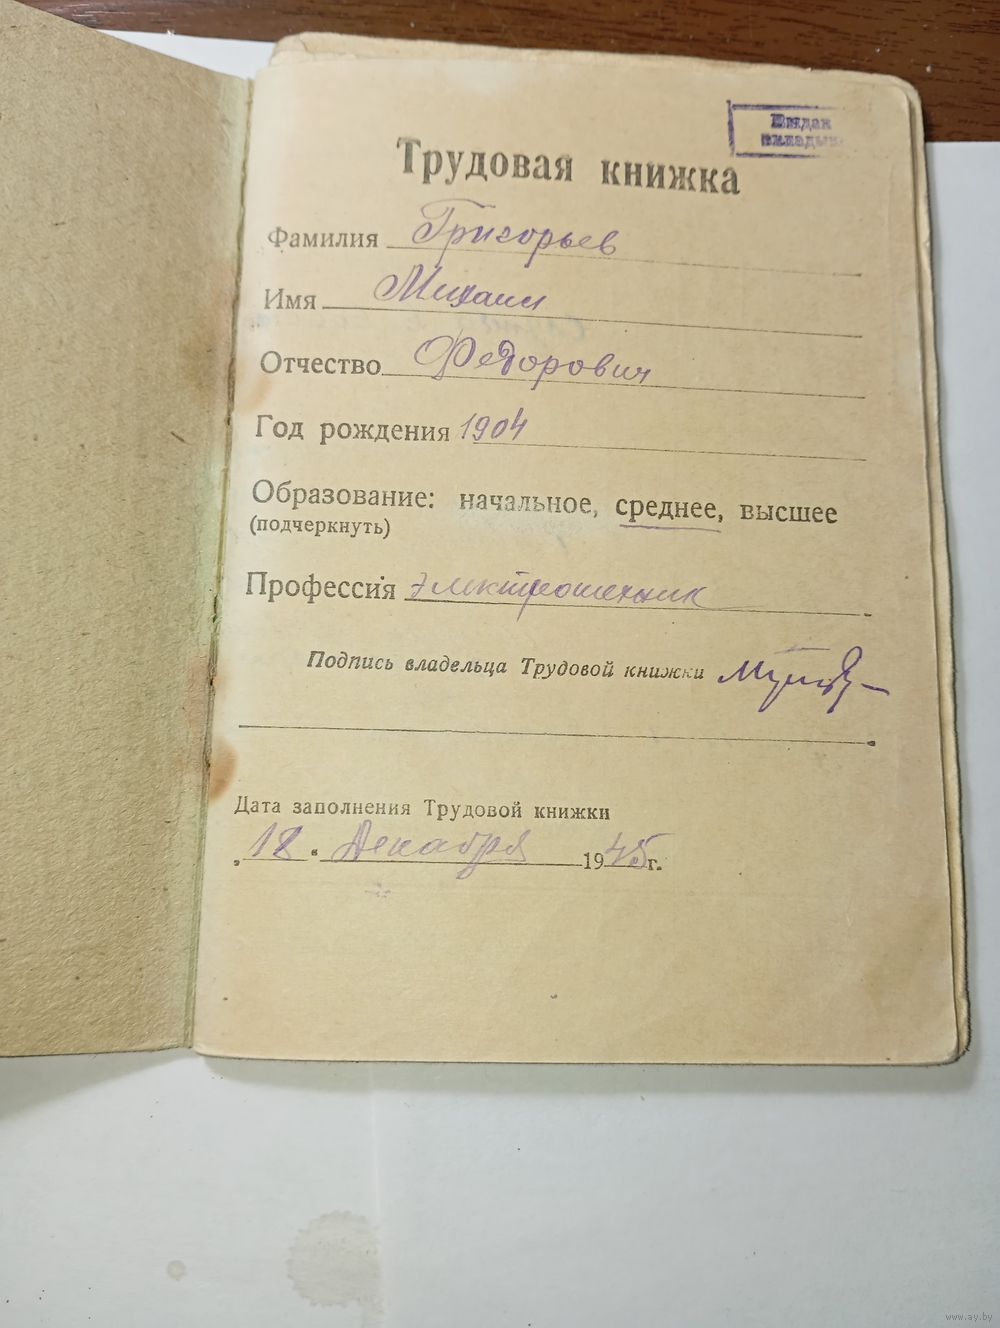 Выдан
вкладыш
Трудовая книжка
Фамилия Григорьев
Имя Михаил
Отчество Федорович
Год рождения 1904
Образование: начальное, среднее, высшее
(подчеркнуть)
Профессия электротехник
Подпись владельца Трудовой книжки
Дата заполнения Трудовой книжки
„18“ Декабря 1945 г.
www.ay.by